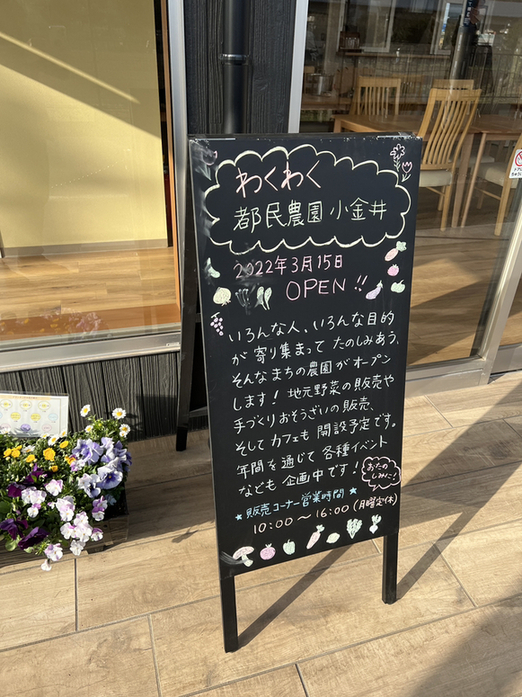 わくわく
都民農園 小金井
2022年3月15日
OPEN!!
いろんな人、いろんな目的
が 寄り集まって たのしみあう、
そんなまちの農園がオープン
します! 地元野菜の販売や
手づくりおそうざいの販売、
そしてカフェも 開設予定です。
年間を通じて 各種イベント
なども 企画中です!
おたの
しみに!
★販売コーナー営業時間★
10:00〜16:00(月曜定休)